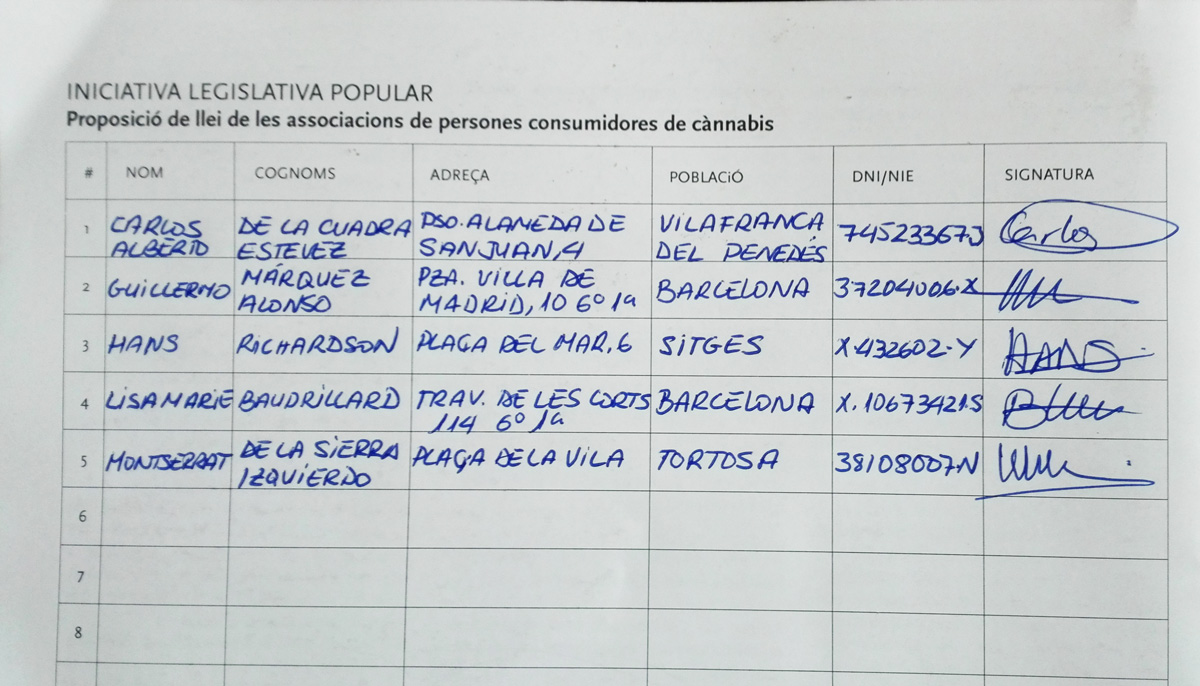 INICIATIVA LEGISLATIVA POPULAR
Proposició de llei de les associacions de persones consumidores de cànnabis
# NOM COGNOMS ADREÇA POBLACIÓ DNI/NIE SIGNATURA
1 CARLOS ALBERTO DE LA CUADRA ESTEVEZ PSO. ALAMEDA DE SAN JUAN, 4 VILAFRANCA DEL PENEDÉS 74523367J Carlos
2 GUILLERMO MÁRQUEZ ALONSO PZA. VILLA DE MADRID, 10 6º 1ª BARCELONA 37204006-X
3 HANS RICHARDSON PLAÇA DEL MAR, 6 SITGES X-432602-Y HANS
4 LISA MARIE BAUDRILLARD TRAV. DE LES CORTS 114 6º 1ª BARCELONA X-10673421S
5 MONTSERRAT DE LA SIERRA IZQUIERDO PLAÇA DE LA VILA TORTOSA 38108007N
6
7
8